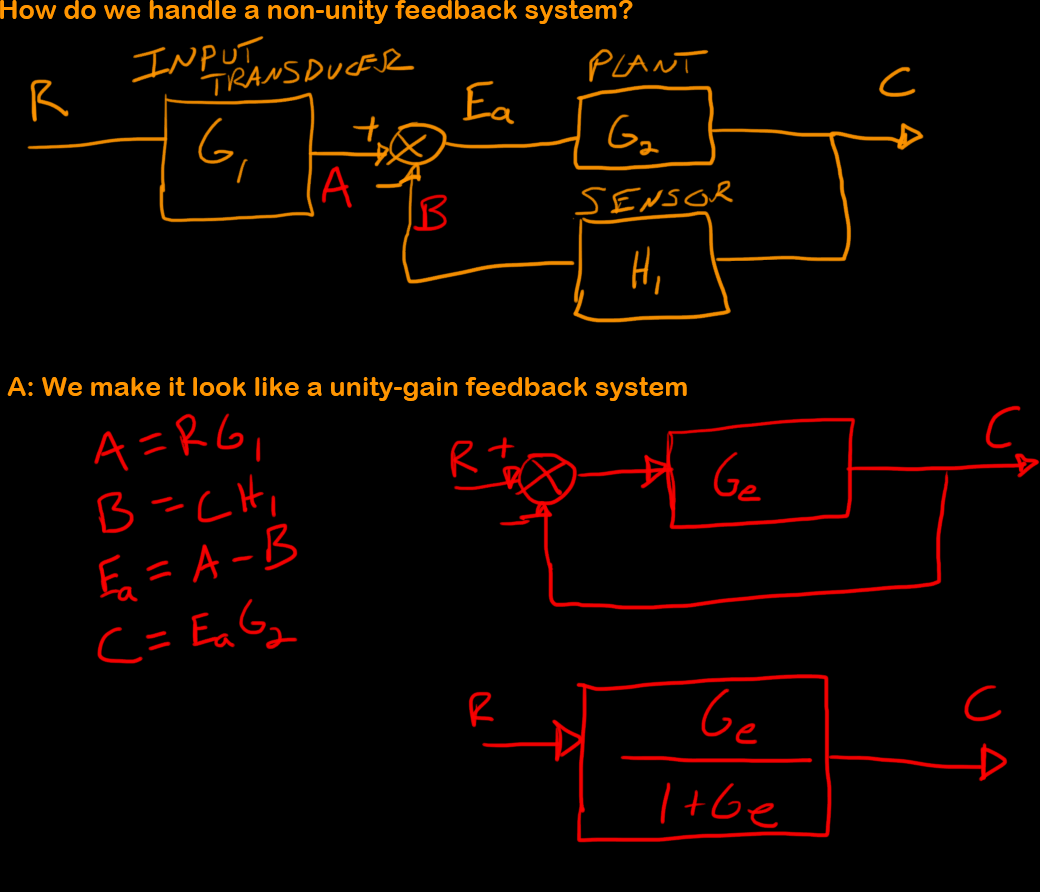 How do we handle a non-unity feedback system?
INPUT TRANSDUCER
PLANT
R
G₁
+
A
−
B
Ea
G₂
C
SENSOR
H₁
A: We make it look like a unity-gain feedback system
A = RG₁
B = CH₁
Ea = A − B
C = EaG₂
R
+
−
Ge
C
R
Ge
1+Ge
C